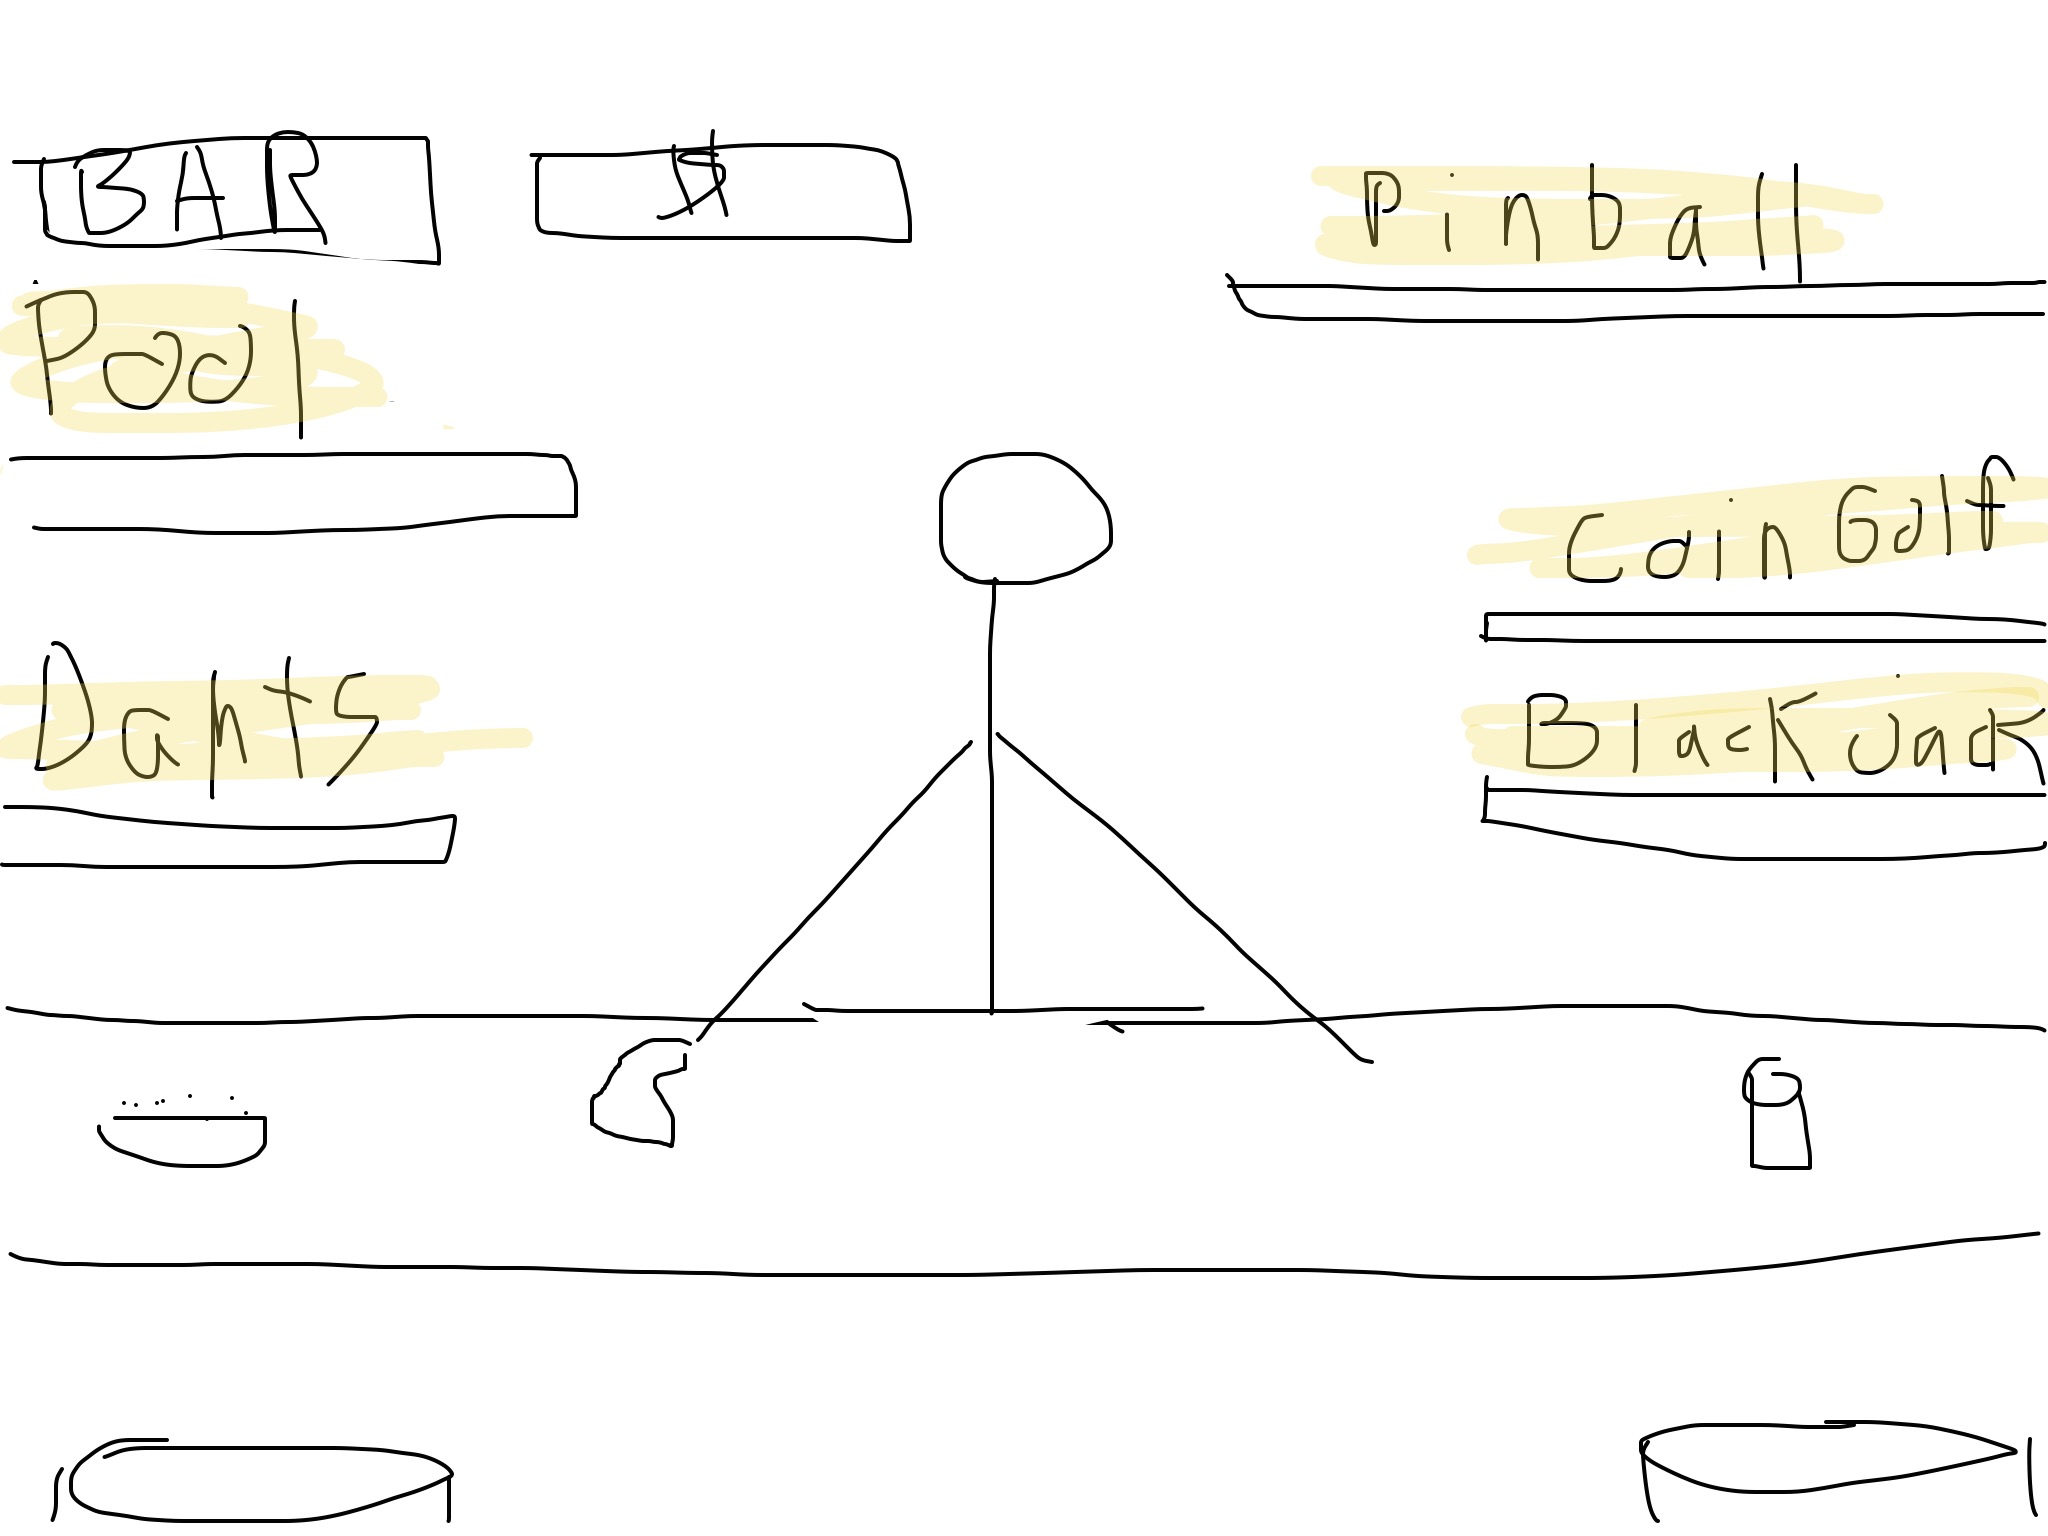 BAR
$
Pinball
Pool
Coin Golf
Darts
Black Jack